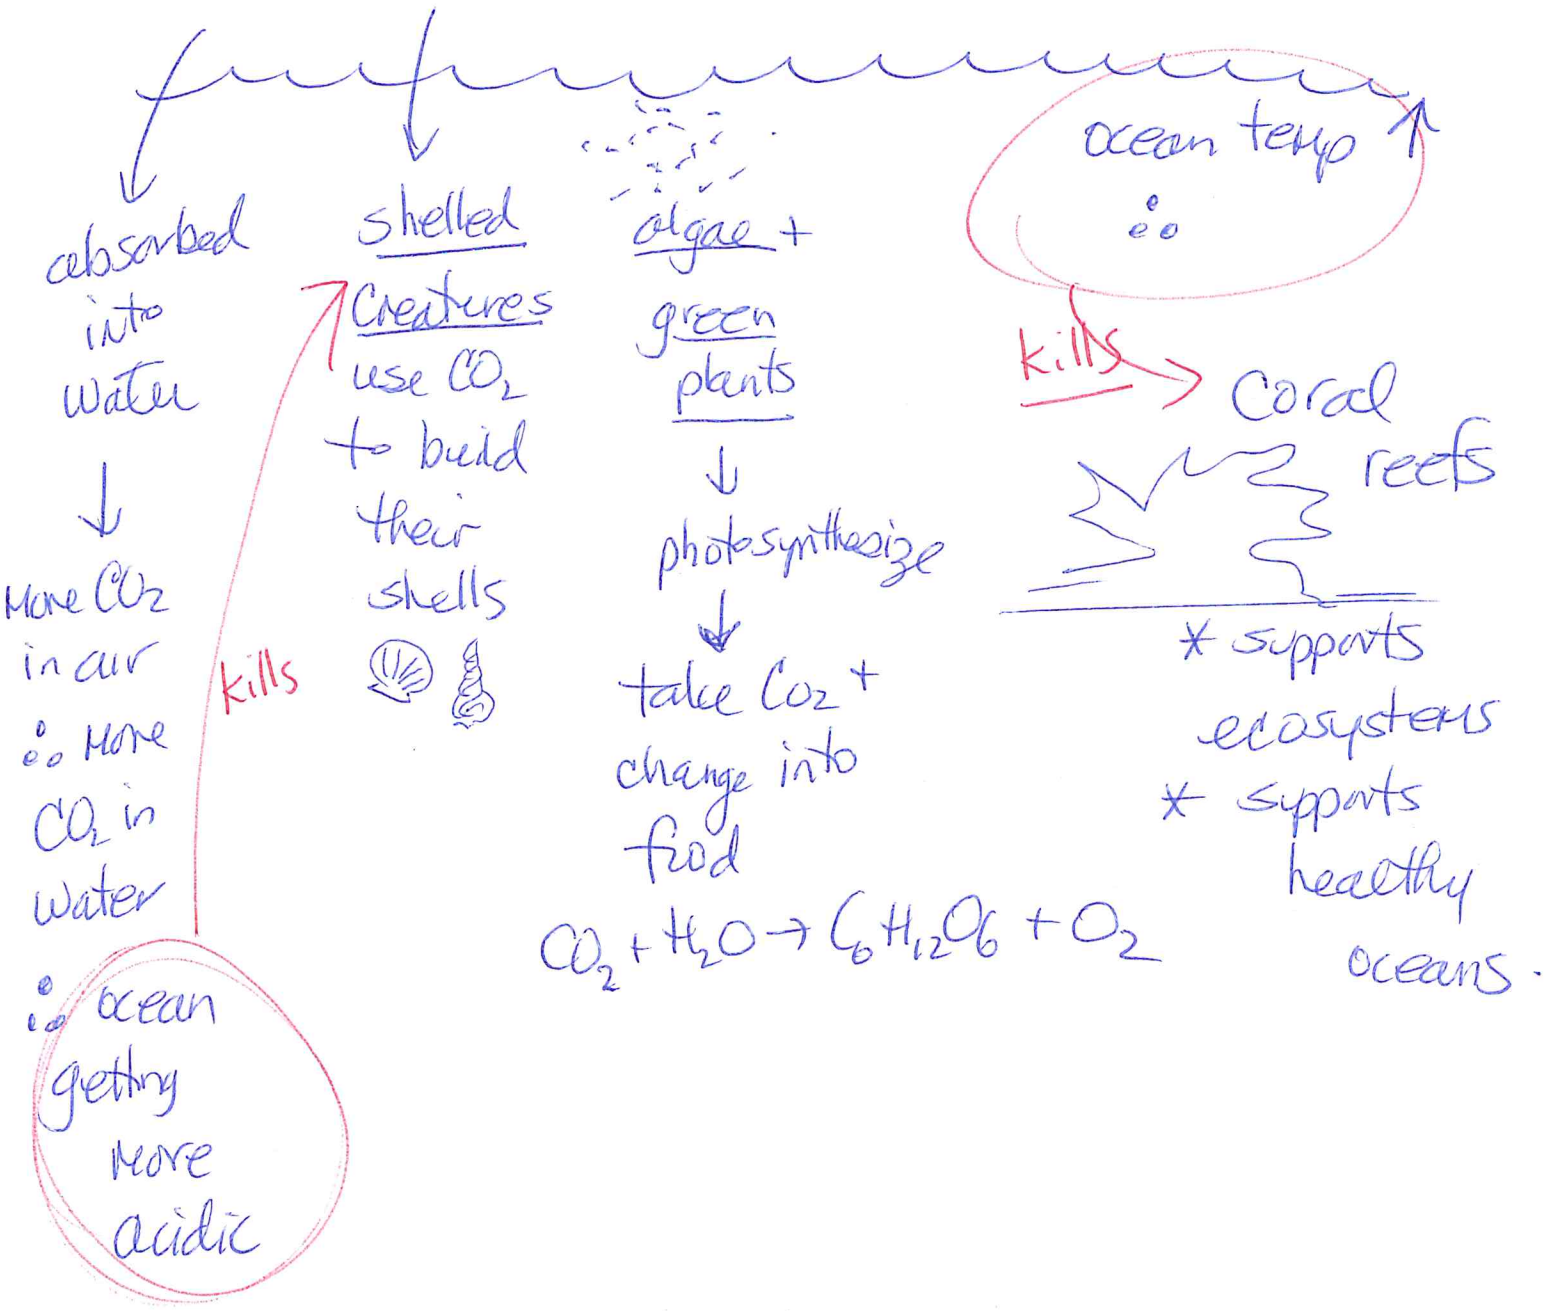 absorbed
into
water
↓
More CO₂
in air
∴ More
CO₂ in
water
∴ ocean
getting
more
acidic
kills
shelled
creatures
use CO₂
to build
their
shells
algae +
green
plants
↓
photosynthesize
↓
take CO₂ +
change into
food
CO₂ + H₂O → C₆H₁₂O₆ + O₂
ocean temp ↑
∴
kills
coral
reefs
* supports
ecosystems
* supports
healthy
oceans.